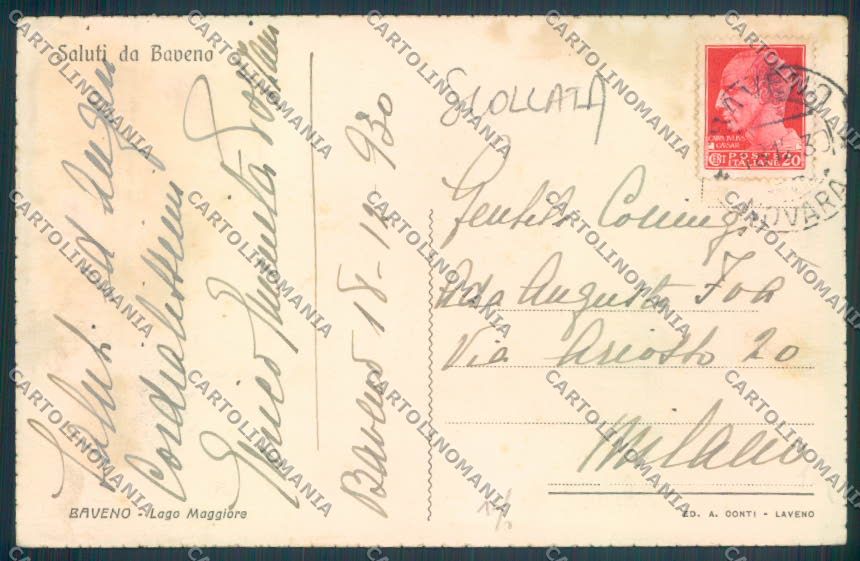 Saluti da Baveno
Saluti ed auguri
Cordialissimi
Enrico
Baveno 18-12-930
SCOLLATA
CAIVS IVLIVS
CAESAR
CENT POSTE 20
ITALIANE
BAVENO
NOVARA
Gentili Coniugi
Ada Augusto Foà
Via Ariosto 20
Milano
BAVENO - Lago Maggiore
ED. A. CONTI - LAVENO
CARTOLINOMANIA